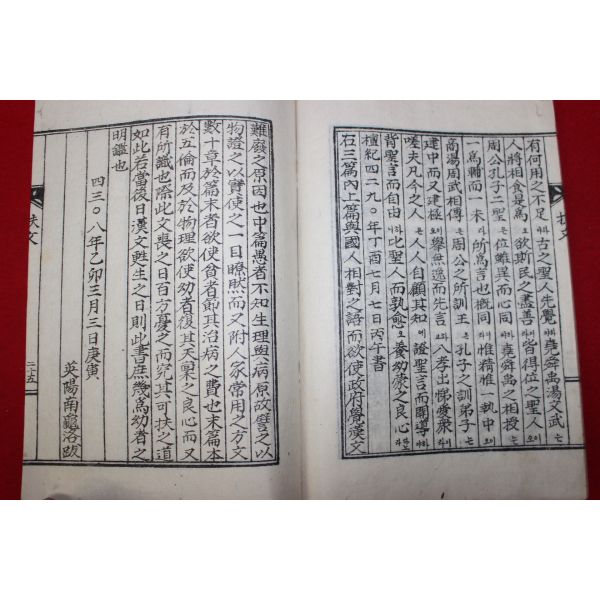 有何用之不足 애라 古之聖人先覺 애라 堯舜禹湯文武 는
人將相食是爲 고로 欲斯民之盡善 하야 皆得位之聖人 이오
周公孔子二聖 은 位雖異而心同 이라 堯舜禹之相授 는
一爲輔而一未 나 所爲言也概同 이라 惟精惟一執中 이오
商湯周武相傳 은 周公之所訓王 은 孔子之訓弟子 는
建中而又建極 이오 擧無逸而先言 이라 孝出悌愛衆 이라
嗟夫凡今之人 은 人人自顧其知 에 證聖言而開導 아
背聖言而自由 아 比聖人而孰愈 오 養幼蒙之良心 이라하노라
檀紀四二九〇年丁酉七月七日丙午書
右三篇內上篇與國人相對之語而欲使政府覺漢文
難廢之原因也中篇愚者不知生理與病原故譬之以
物證之以實使之一目瞭然而又附人家常用之方文
數十章於篇末者欲使貧者節其治病之費也末篇本
於五倫而及於物理欲使幼者復其天稟之良心而又
有所識也際此文喪之日百方憂之而究其可扶之道
如此若當後日漢文甦生之日則此書庶幾爲幼者之
明鑑也
四三〇八年乙卯三月三日庚寅
英陽南龜洛跋
扶文
二十五
扶文